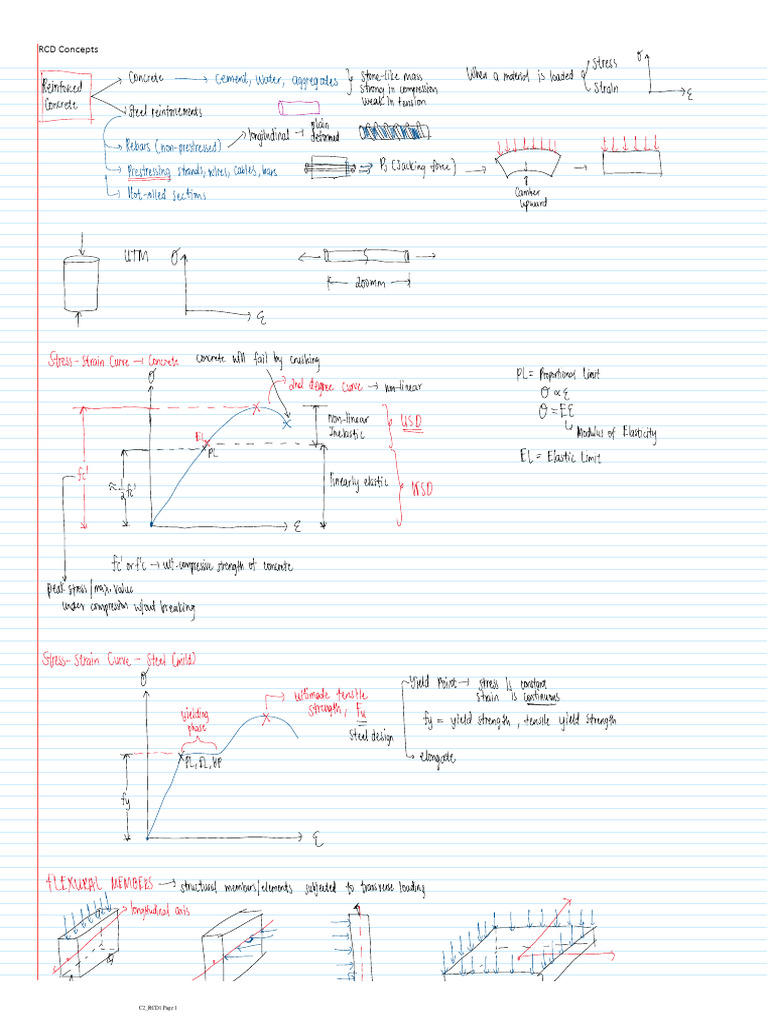 RCD Concepts
Reinforced Concrete
Concrete → cement, water, aggregates
stone-like mass
strong in compression
weak in tension
When a material is loaded
stress
strain
σ
ε
Steel reinforcements
Rebars (non-prestressed) → longitudinal → plain
deformed
Prestressing strands, wires, cables, bars
→ (Jacking force) →
Camber
upward
→
Hot-rolled sections
UTM
σ
ε
200mm
Stress-Strain Curve → Concrete
concrete will fail by crushing
2nd degree curve → non-linear
σ
EL
PL
non-linear
Inelastic
USD
fc'
≈ ½ fc'
linearly elastic
WSD
ε
PL = Proportional Limit
σ ∝ ε
σ = Eε
Modulus of Elasticity
EL = Elastic Limit
fc' or f'c → ult. compressive strength of concrete
peak stress/max. value
under compression w/out breaking
Stress-Strain Curve - Steel (mild)
σ
yielding
phase
ultimate tensile
strength, Fu
steel design
PL, EL, YP
fy
ε
Yield Point → stress is constant
strain is continuous
fy = yield strength, tensile yield strength
elongate
FLEXURAL MEMBERS → structural members/elements subjected to transverse loading
longitudinal axis
C2_RCD1 Page 1